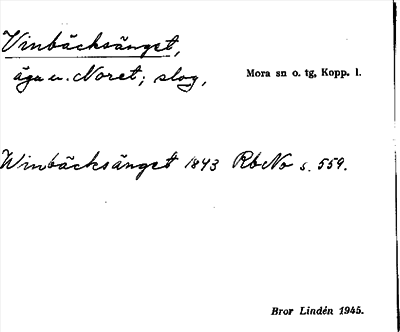 Vinbäcksänget,
äga u. Noret; slog,
Mora sn o. tg, Kopp. l.
Winbäcksänget 1843 RbNo s. 559.
Bror Lindén 1945.